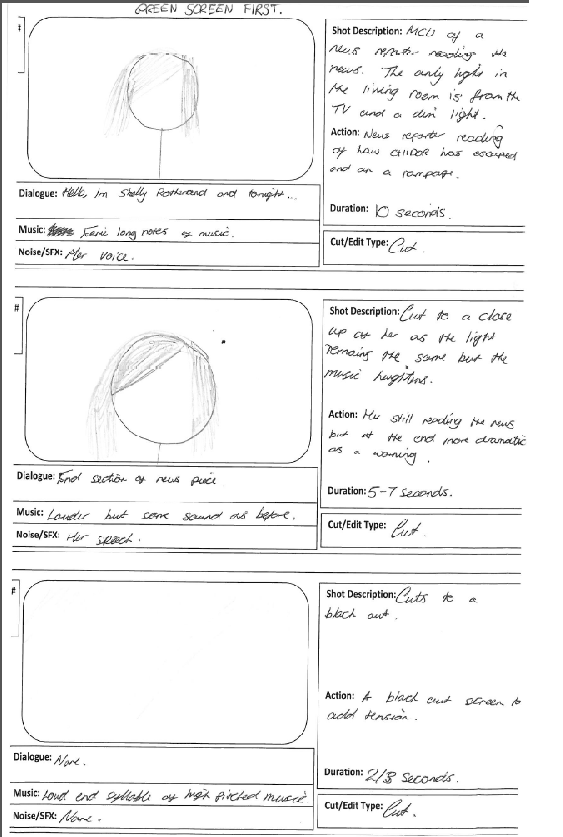 GREEN SCREEN FIRST.
#
Shot Description: MCU of a
news reporter reading the
news. The only light in
the living room is from the
TV and a dim light.
Action: News reporter reading
of how has escaped
and on a rampage.
Duration: 10 seconds.
Cut/Edit Type: Cut.
Dialogue: Hello, Im Shelly and tonight...
Music: Eerie long notes of music.
Noise/SFX: Her voice.
#
Shot Description: Cut to a close
up of her as the light
remains the same but the
music heightins.
Action: Her still reading the news
but at the end more dramatic
as a warning.
Duration: 5-7 seconds.
Cut/Edit Type: Cut.
Dialogue: End section of news piece
Music: Louder but same sound as before.
Noise/SFX: Her speech.
#
Shot Description: Cuts to a
black out.
Action: A black out screen to
add tension.
Duration: 2/3 seconds.
Cut/Edit Type: Cut.
Dialogue: None.
Music: Loud end syllable of high pitched music
Noise/SFX: None.